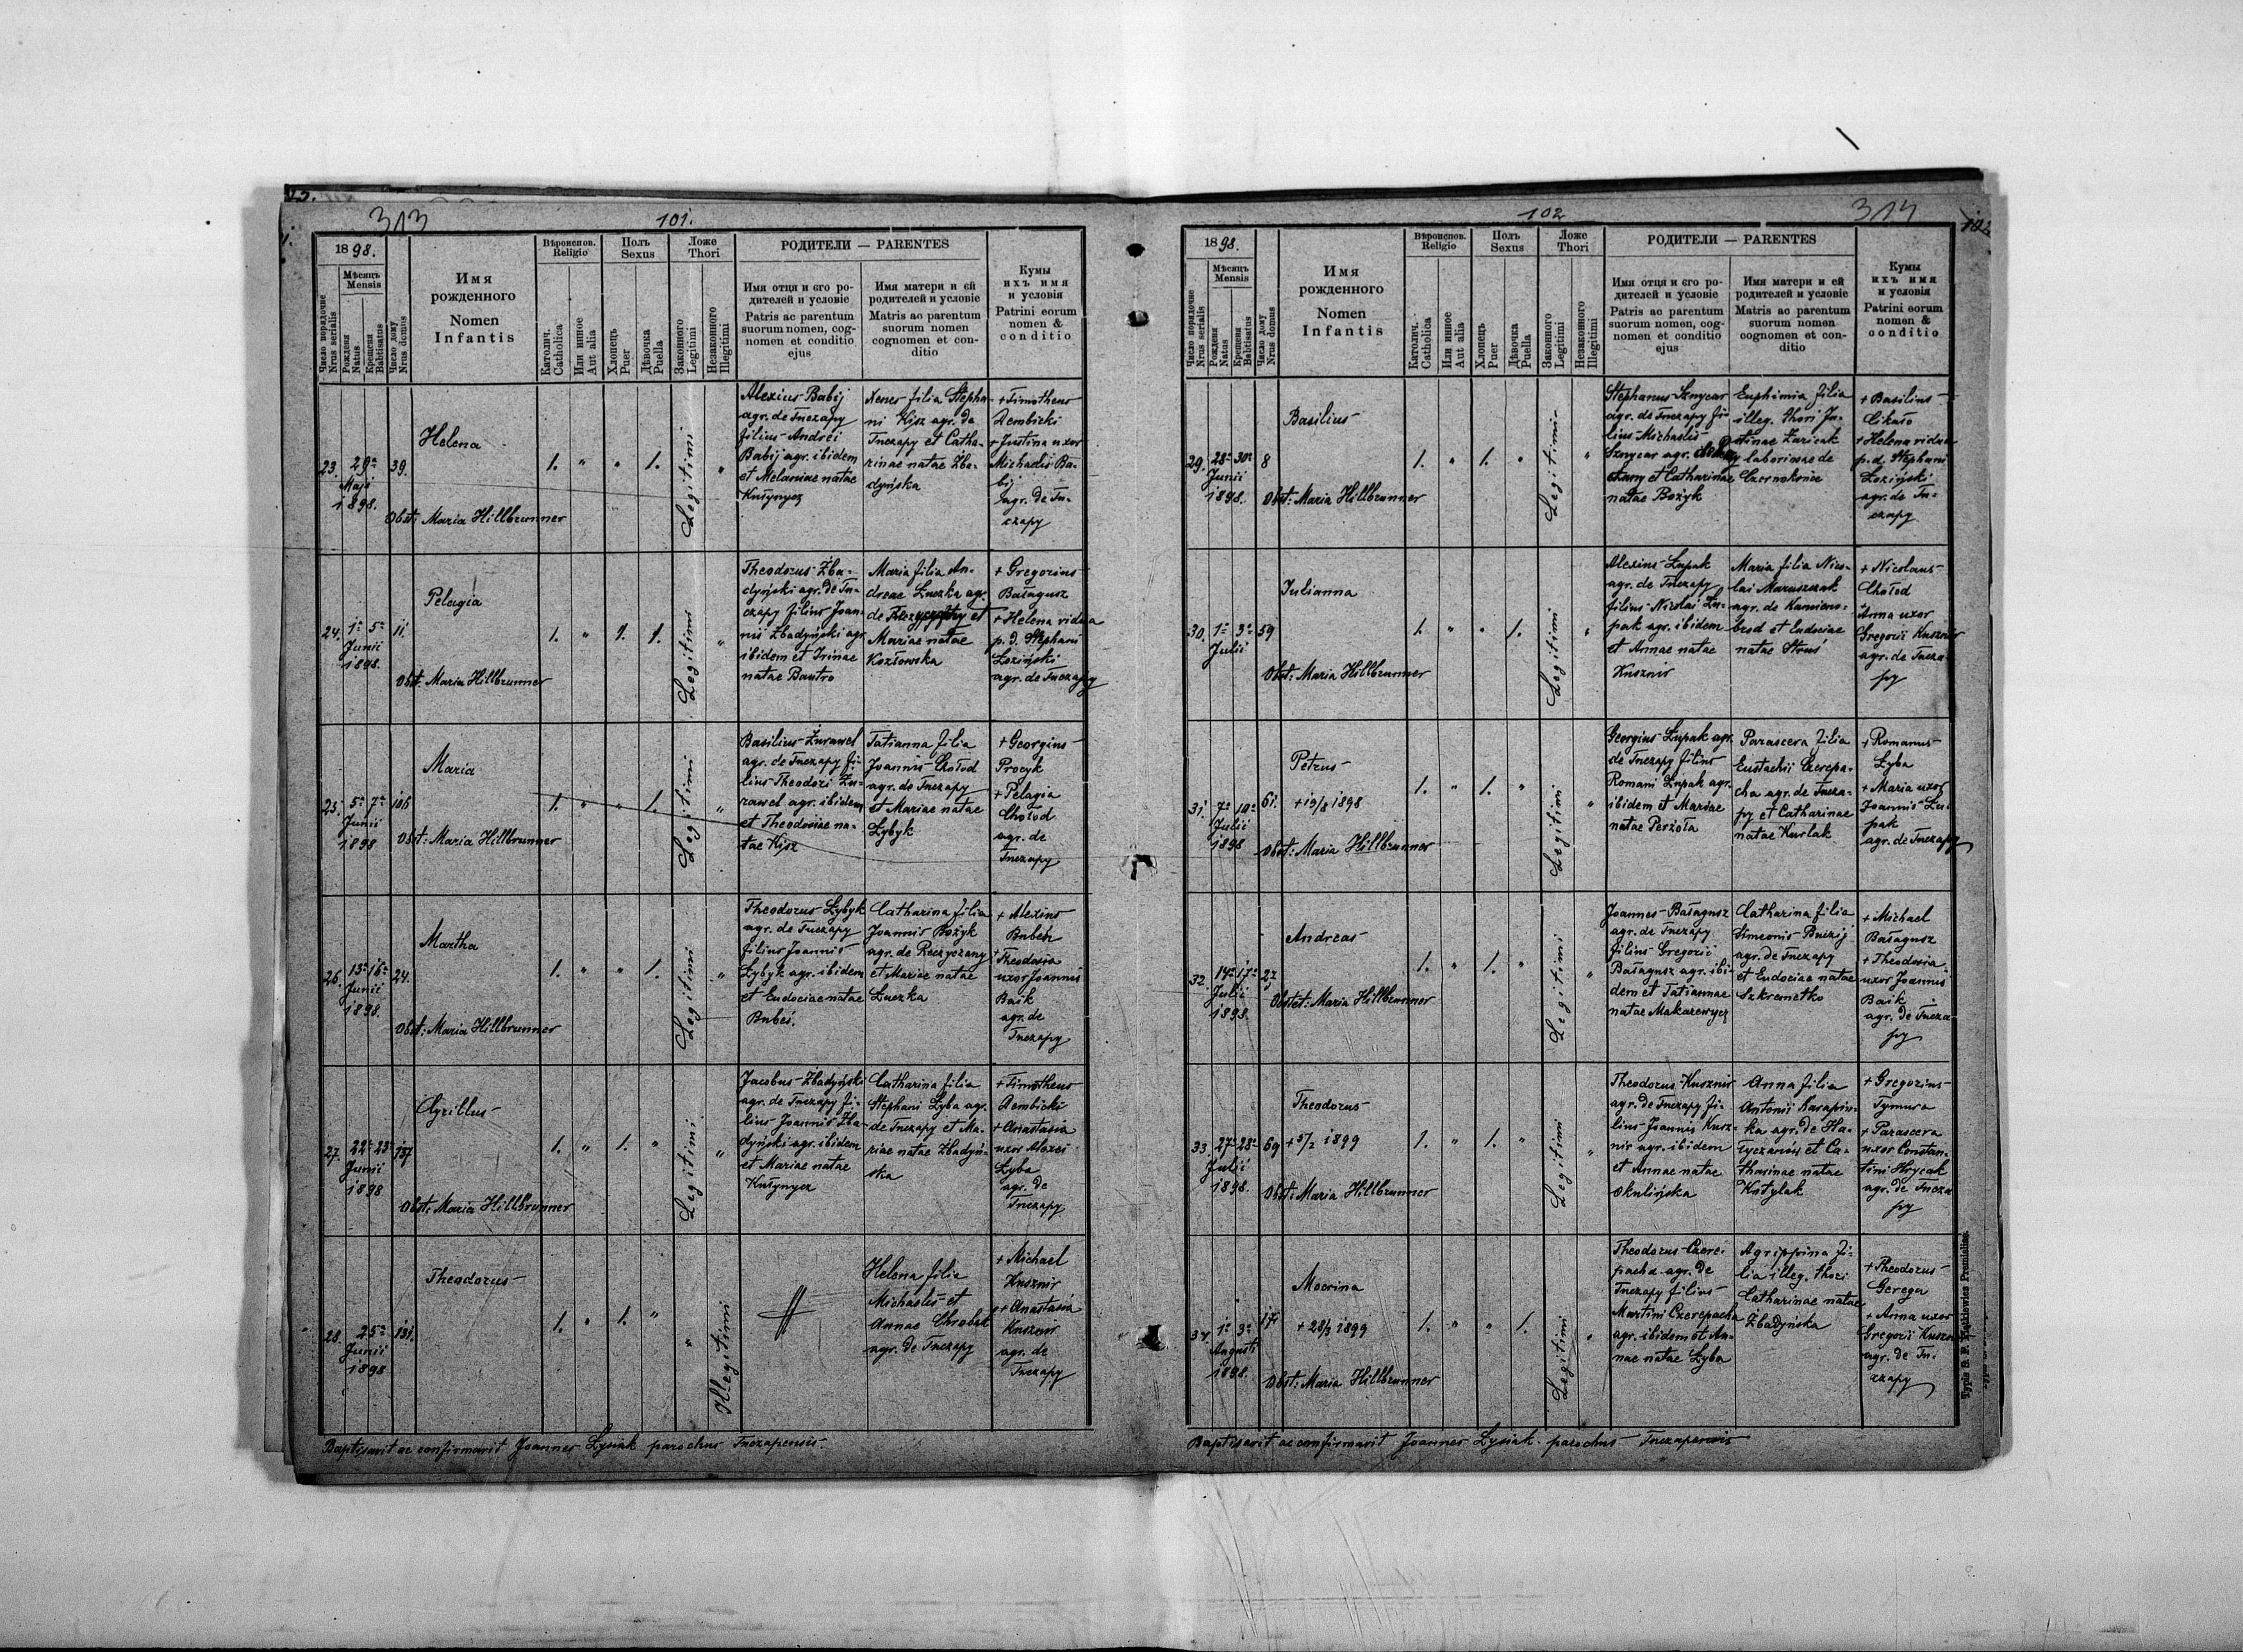 313
101.
1898.
Мѣсяцъ
Mensis
Число порядочне
Nrus serialis
Рождения
Natus
Крещеня
Babtisatus
Число дому
Nrus domus
Имя
рожденного
Nomen
Infantis
Вѣроиспов.
Religio
Католич.
Catholica
Или инное
Aut alia
Полъ
Sexus
Хлопецъ
Puer
Дѣвочка
Puella
Ложе
Thori
Законного
Legitimi
Незаконного
Illegitimi
РОДИТЕЛИ — PARENTES
Имя отця и єго ро-
дителей и условіє
Patris ac parentum
suorum nomen, cog-
nomen et conditio
ejus
Имя матери и єй
родителей и условіє
Matris ac parentum
suorum nomen
cognomen et con-
ditio
Кумы
ихъ имя
и условія
Patrini eorum
nomen &
conditio
23.
29ª
Maji
1898.
39.
Helena
Obst: Maria Hillbrunner
1. " " 1.
Legitimi
"
Alexius Babij
agr. de Tuczapy
filius Andrei
Babij agr. ibidem
et Melaniae natae
Kuřynycz
Xenes filia Stepha-
ni Kisz agr. de
Tuczapy et Catha-
rinae natae Zba-
dyńska
+ Timotheus
Dembicki
+ Justina uxor
Michaelis Ba-
bij
agr. de Tu-
czapy
24.
1ª 5ª
Junii
1898.
11.
Pelagia
Obst. Maria Hillbrunner
1. " 1. 1.
Legitimi
"
Theodorus Zba-
dyński agr. de Tu-
czapy filius Joan-
nis Zbadyński agr.
ibidem et Irinae
natae Bantro
Maria filia An-
dreae Łuczka agr.
de et
Mariae natae
Kozłowska
+ Gregorius
Bałagusz
+ Helena vidua
p. d. Stephani
Łoziński
agr. de Tuczapy
25.
5ª 7ª
Junii
1898
106
Maria
Obst: Maria Hillbrunner
1. " " 1.
Legitimi
"
Basilius Żurawel
agr. de Tuczapy fi-
lius Theodori Żu-
rawel agr. ibidem
et Theodosiae na-
tae Kisz
Tatianna filia
Joannis Chołod
agr. de Tuczapy
et Mariae natae
Łybyk
+ Georgius
Procyk
+ Pelagia
Chołod
agr. de
Tuczapy
26.
13ª 16ª
Junii
1898.
24.
Martha
Obst: Maria Hillbrunner
1. " " 1.
Legitimi
"
Theodorus Łybyk
agr. de Tuczapy
filius Joannis
Łybyk agr. ibidem
et Eudociae natae
Bubeś.
Catharina filia
Joannis Bożyk
agr. de Reczyczany
et Mariae natae
Łuczka
+ Alexius
Bubeń
+ Theodosia
uxor Joannis
Baik
agr. de
Tuczapy
27.
22ª 23ª
Junii
1898
137
Cyrillus
Obst: Maria Hillbrunner
1. " 1. "
Legitimi
"
Jacobus Zbadyński
agr. de Tuczapy fi-
lius Joannis Zba-
dyński agr. ibidem
et Mariae natae
Kułynycz
Catharina filia
Stephani Łyba agr.
de Tuczapy et Ma-
riae natae Zbadyń-
ska
+ Timotheus
Dembicki
+ Anastasia
uxor Alexei
Łyba
agr. de
Tuczapy
28.
25ª
Junii
1898
131.
Theodorus
1. " 1. "
"
Illegitimi
Helena filia
Michaelis et
Annae Chrobak
agr. de Tuczapy
+ Michael
Kusznir
+ Anastasia
Kusznir
agr. de
Tuczapy
Baptisavit ac confirmavit Joannes Łysiak parochus Tuczapensis
102
314
1898.
Мѣсяцъ
Mensis
Число порядочне
Nrus serialis
Рождения
Natus
Крещеня
Babtisatus
Число дому
Nrus domus
Имя
рожденного
Nomen
Infantis
Вѣроиспов.
Religio
Католич.
Catholica
Или инное
Aut alia
Полъ
Sexus
Хлопецъ
Puer
Дѣвочка
Puella
Ложе
Thori
Законного
Legitimi
Незаконного
Illegitimi
РОДИТЕЛИ — PARENTES
Имя отця и єго ро-
дителей и условіє
Patris ac parentum
suorum nomen, cog-
nomen et conditio
ejus
Имя матери и єй
родителей и условіє
Matris ac parentum
suorum nomen
cognomen et con-
ditio
Кумы
ихъ имя
и условія
Patrini eorum
nomen &
conditio
29.
28ª 30ª
Junii
1898.
8
Basilius
Obst: Maria Hillbrunner
1. " 1. "
Legitimi
"
Stephanus Sznycar
agr. de Tuczapy fi-
lius Michaelis
Sznycar agr.
et Catharinae
natae Bożyk
Euphimia filia
illeg. thori Ju-
stinae Zaricak
laboriosae de
Czernokonie
+ Basilius
Cikało
+ Helena vidua
p. d. Stephani
Łoziński
agr. de Tu-
czapy
30.
1ª 3ª
Julii
59
Julianna
Obst: Maria Hillbrunner
1. " " 1.
Legitimi
"
Alexius Łupak
agr. de Tuczapy
filius Nicolai Łu-
pak agr. ibidem
et Annae natae
Kusznir
Maria filia Nico-
lai Maruszczak
agr. de Kamieno-
brod et Eudociae
natae Struś
+ Nicolaus
Chołod
+ Anna uxor
Gregorii Kusznir
agr. de Tucza-
py
31.
7ª 10ª
Julii
1898
61.
Petrus
+ 19/8 1898
Obst: Maria Hillbrunner
1. " 1. "
Legitimi
"
Georgius Łupak agr.
de Tuczapy filius
Romani Łupak agr.
ibidem et Mariae
natae Perżoła
Parascera filia
Eustachii Czerepa-
cha agr. de Tucza-
py et Catharinae
natae Kurlak
+ Romanus
Łyba
+ Maria uxor
Joannis Łu-
pak
agr. de Tuczapy
32.
14ª 17ª
Julii
1898.
27
Andreas
Obstet: Maria Hillbrunner
1. " 1. "
Legitimi
"
Joannes Bałagusz
agr. de Tuczapy
filius Gregorii
Bałagusz agr. ibi-
dem et Tatiannae
natae Makarewycz
Catharina filia
Simeonis Buczij
agr. de Tuczapy
et Eudociae natae
Szkrametko
+ Michael
Bałagusz
+ Theodosia
uxor Joannis
Baik
agr. de Tucza-
py
33.
27ª 28ª
Julii
1898.
69
Theodorus
+ 5/2 1899
Obst: Maria Hillbrunner
1. " 1. "
Legitimi
"
Theodorus Kusznir
agr. de Tuczapy fi-
lius Joannis Kusz-
nir agr. ibidem
et Annae natae
Okulińska
Anna filia
Antonii Karapin-
ka agr. de Ha-
łyczanów et Ca-
tharinae natae
Kotylak
+ Gregorius
Tymura
+ Parascera
uxor Constan-
tini Hrycak
agr. de Tucza
py
34.
1ª 3ª
Augusti
1898.
171
Mocrina
+ 28/3 1899
Obst: Maria Hillbrunner
1. " " 1.
Legitimi
"
Theodorus Czere-
pacha agr. de
Tuczapy filius
Martini Czerepacha
agr. ibidem et An-
nae natae Łyba
Agrippina fi-
lia illeg. thori
Catharinae natae
Zbadyńska
+ Theodorus
Gerega
+ Anna uxor
Gregorii Kusznir
agr. de Tu-
czapy
Baptisavit ac confirmavit Joannes Łysiak parochus Tuczapensis
Typis S. F. Piątkiewicz Premisliae.